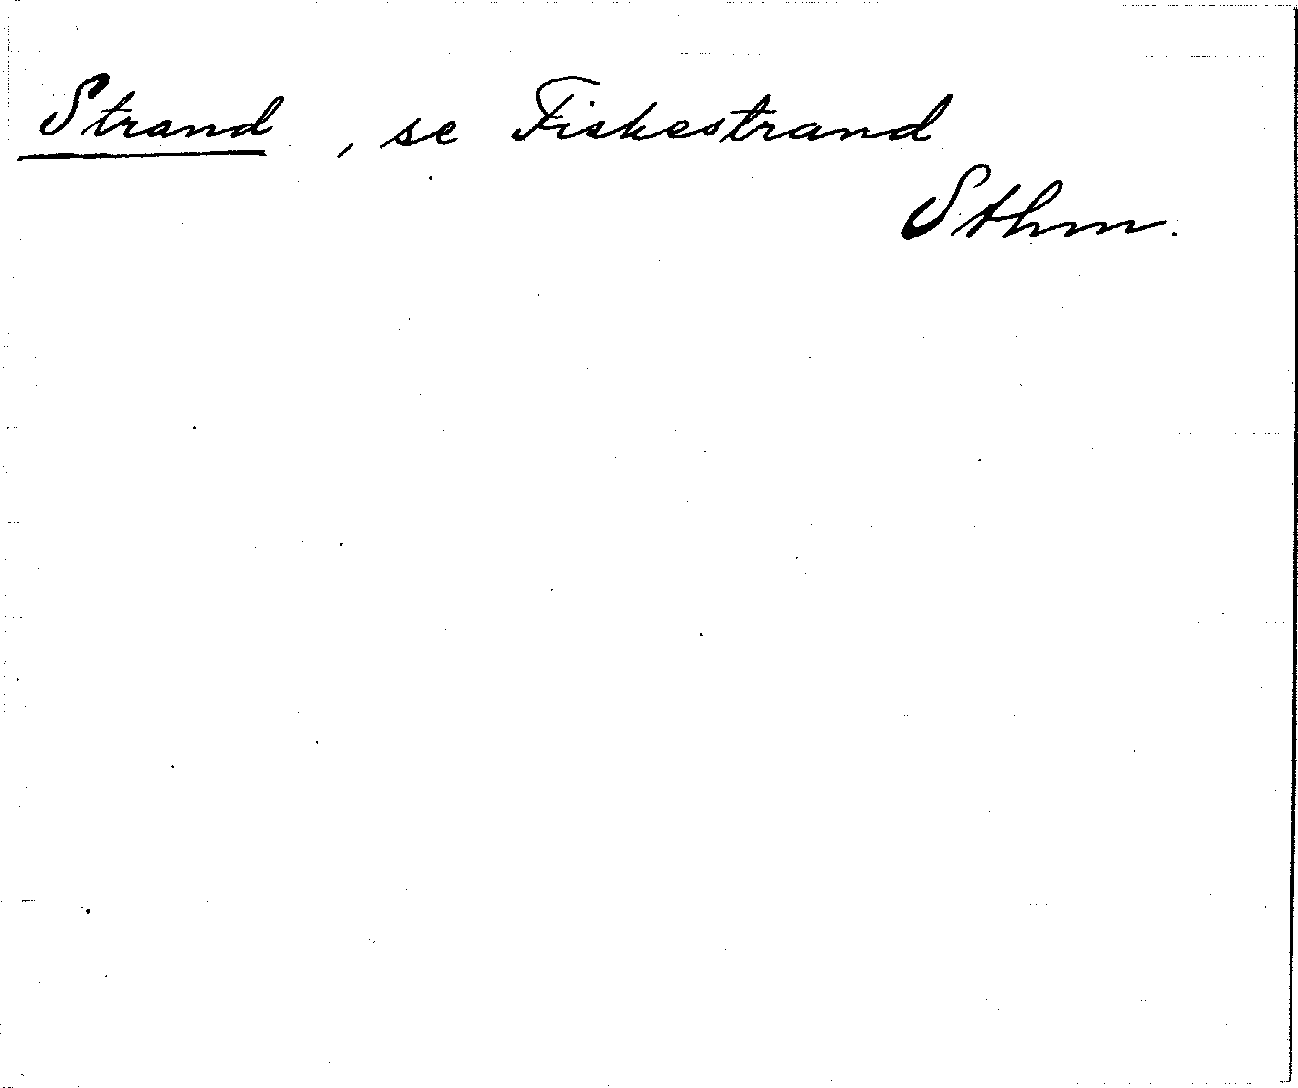 Strand, se Fiskestrand
Sthm.